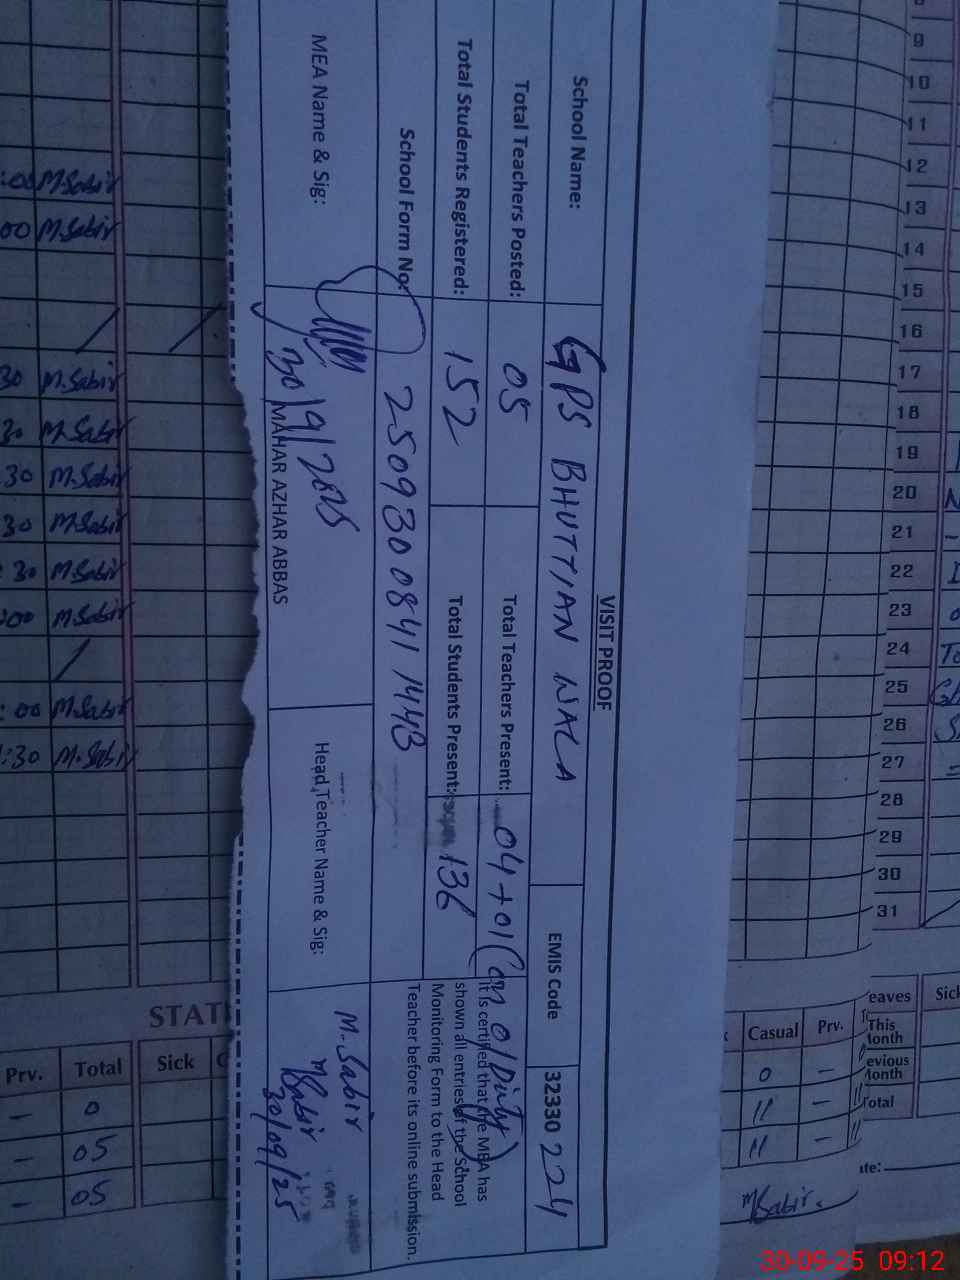 VISIT PROOF
School Name: GPS BHUTTIAN WALA EMIS Code 32330 224
Total Teachers Posted: 05 Total Teachers Present: 04+01 (on o/Duty)
Total Students Registered: 152 Total Students Present: 136
It is certified that the MEA has
shown all entries of the School
Monitoring Form to the Head
Teacher before its online submission.
School Form No: 250930084 1443
MEA Name & Sig: 30/9/2025 MAHAR AZHAR ABBAS
Head Teacher Name & Sig: M. Sabir
MSabir
30/09/25
:00 M.Sabir
00 M.Sabir
30 M.Sabir
30 M.Sabir
30 M.Sabir
30 M.Sabir
:30 M.Sabir
:00 M.Sabir
:00 M.Sabir
:30 M.Sabir
STATE
Prv. Total Sick
- 0
- 05
- 05
9
10
11
12
13
14
15
16
17
18
19
20
21
22
23
24
25
26
27
28
29
30
31
Casual Prv.
0 -
" -
" -
eaves Sick
This
Month
evious
Month
Total
te:
MSabir.
30-09-25 09:12